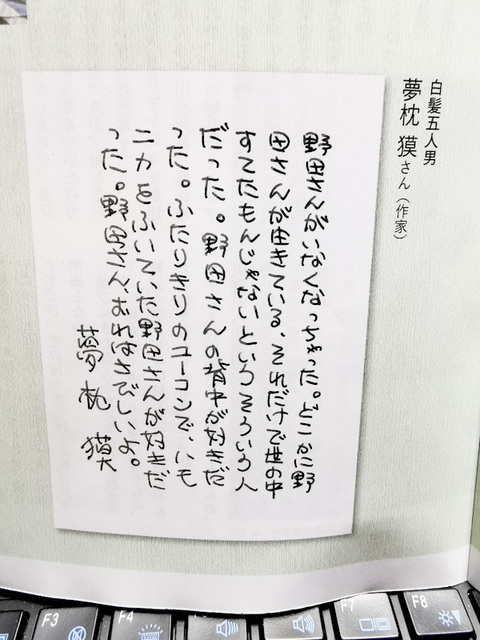 白髪五人男
夢枕 獏さん（作家）
野田さんがいなくなっちゃった。どこかに野
田さんが生きている、それだけで世の中
すてたもんじゃないというそういう人
だった。野田さんの背中が好きだ
った。ふたりきりのユーコンで、ハモ
ニカをふいていた野田さんが好きだ
った。野田さん、おれはさびしいよ。
夢枕 獏
F3
F4
F7
F8